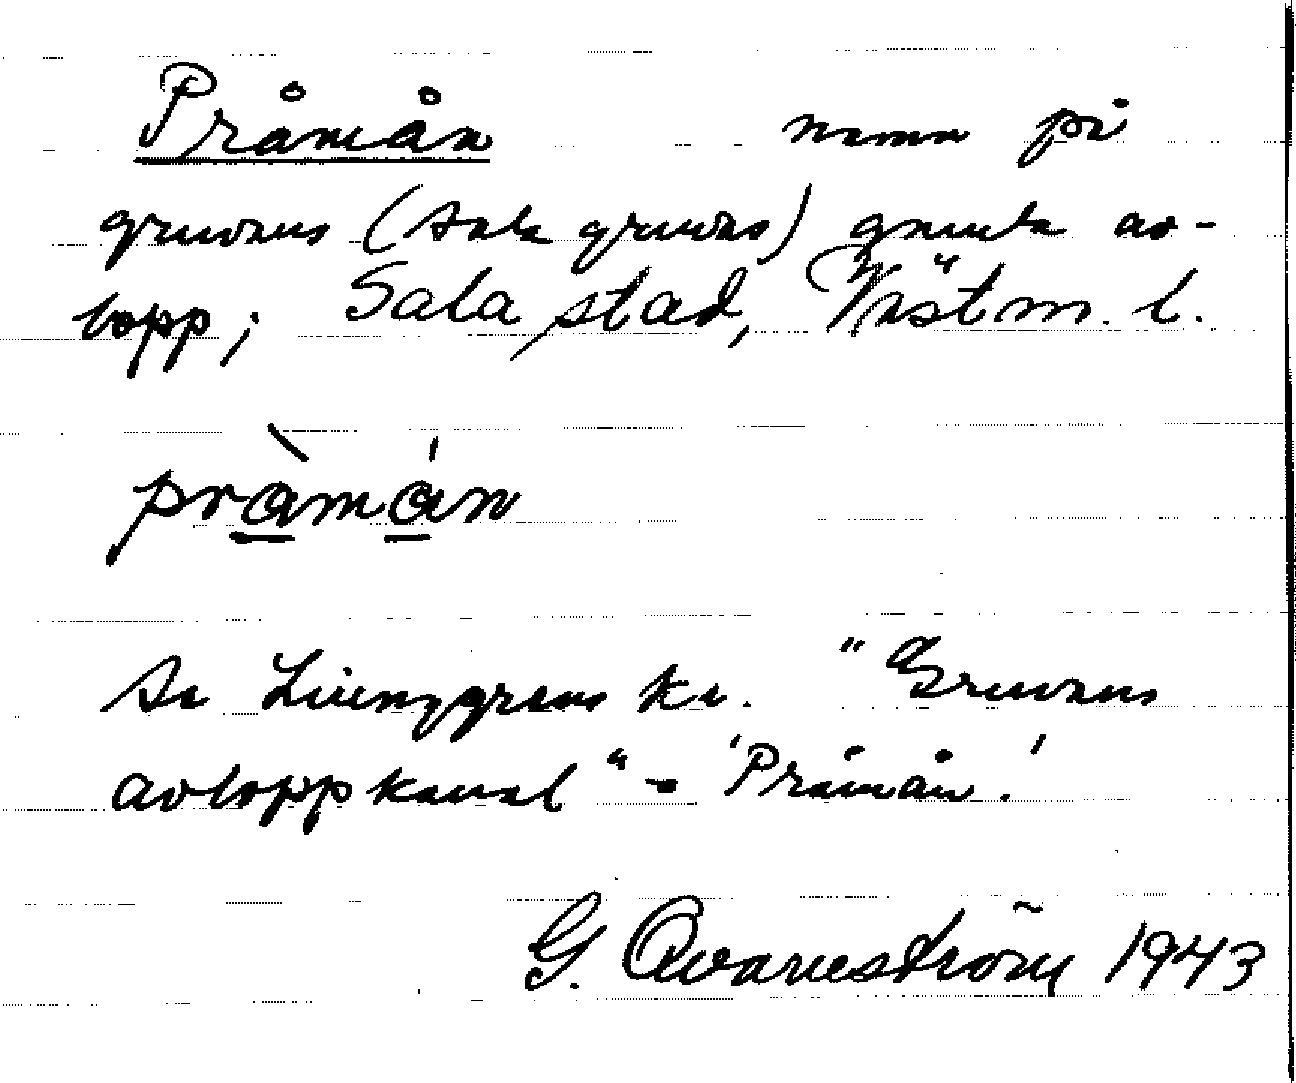 Pråmån namn på
gruvans (Sala gruvas) gamla av-
lopp; Sala stad, Västm. l.
pràmán
Se gruvans ka. "Gruvans
avloppkanal" = 'Pråmån'.
G. Qvarneström 1943